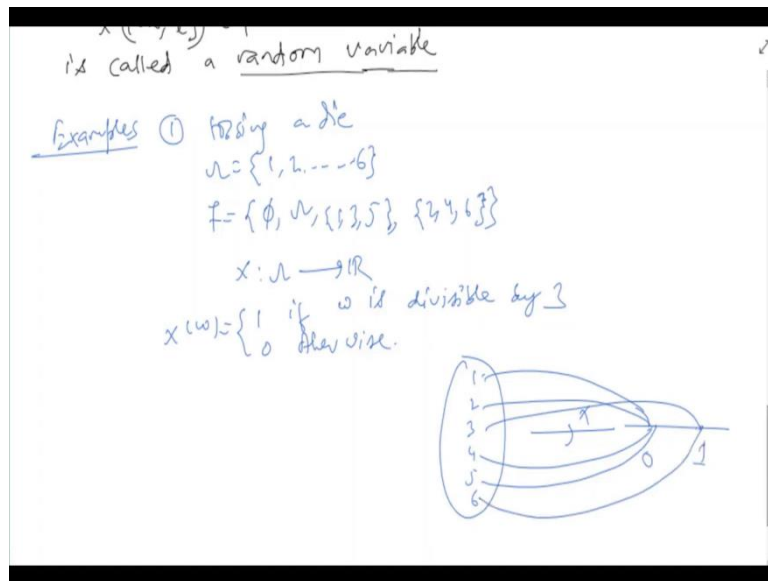 is called a random variable
Examples ① tossing a die
Ω = {1, 2, ---- 6}
F = {φ, Ω, {1,3,5}, {2,4,6}}
X : Ω → IR
X(ω) = { 1 if ω is divisible by 3
0 otherwise.
1
2
3
4
5
6
X
0 1